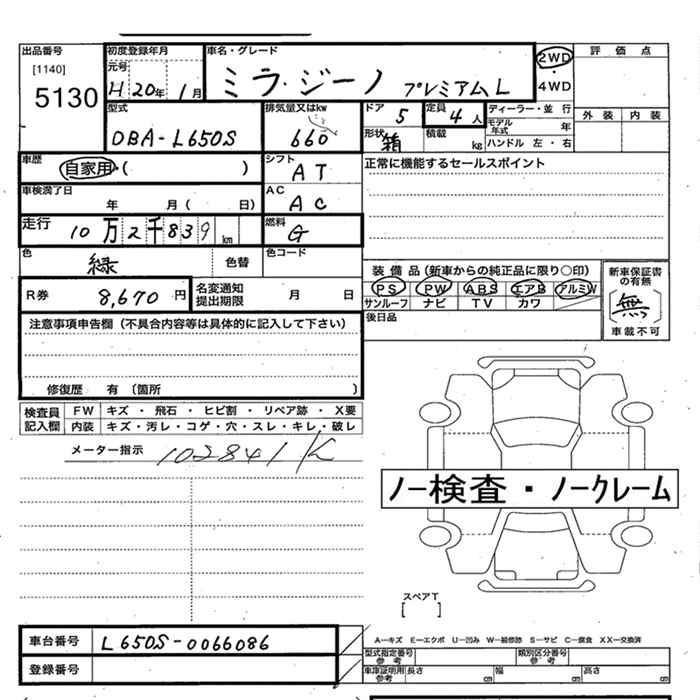 出品番号 初度登録年月 車名・グレード 評価点
[1140] 元号 2WD
5130 H 20年 1月 ミラ・ジーノ プレミアムL 4WD
型式 排気量又はkw ドア 5 定員 4人 ディーラー・並行 外装 内装
モデル年式 年
DBA-L650S 660 形状 箱 積載 kg ハンドル 左・右
車歴 自家用・( ) シフト AT 正常に機能するセールスポイント
車検満了日 年 月( 日) AC AC
走行 10万2千839km 燃料 G
色 緑 色替 色コード
装備品(新車からの純正品に限り〇印) 新車保証書の有無
R券 8,670円 名変通知提出期限 月 日 PS PW ABS エアB アルミW [無]
サンルーフ ナビ TV カワ
注意事項申告欄(不具合内容等は具体的に記入して下さい) 後日品 車載不可
修復歴 有(箇所 )
検査員記入欄 FW キズ・飛石・ヒビ割・リペア跡・X要
内装 キズ・汚レ・コゲ・穴・スレ・キレ・破レ
メーター指示 102841K
ノー検査・ノークレーム
スペアT
[ ]
車台番号 L650S-0066086 A―キズ E―エクボ U―凹み W―補修跡 S―サビ C―腐食 XX―交換済
型式指定番号 参考 類別区分番号 参考
登録番号 車庫証明用参考 長さ cm 幅 cm 高さ cm